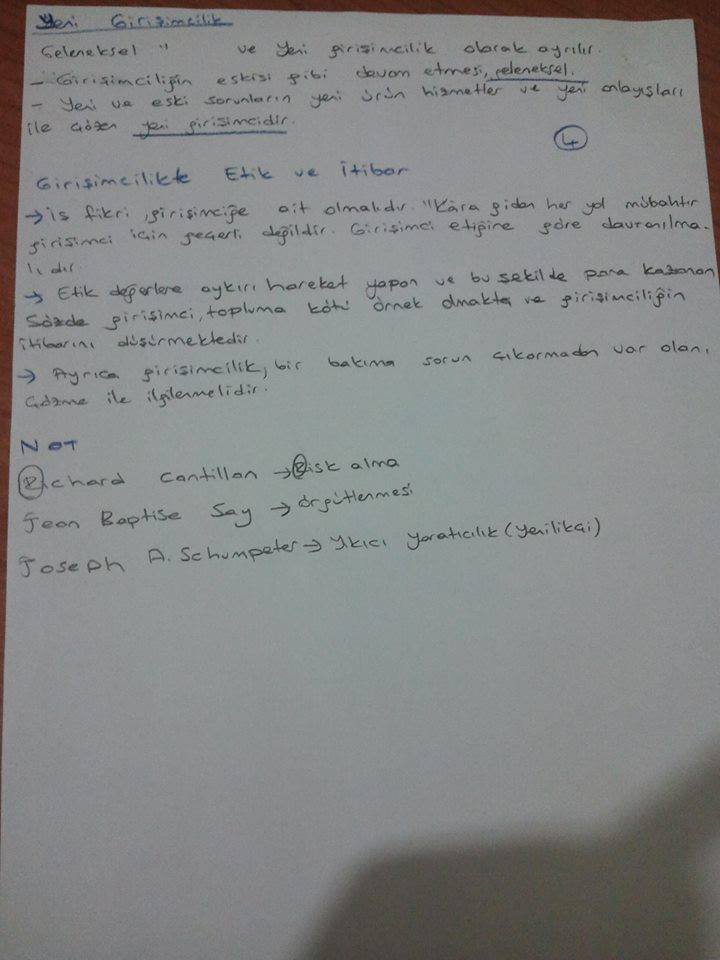 Yeni Girişimcilik
Geleneksel " ve Yeni girişimcilik olarak ayrılır.
- Girişimciliğin eskisi gibi devam etmesi, geleneksel.
- Yeni ve eski sorunların yeni ürün hizmetler ve yeni anlayışları
ile çözen yeni girişimcidir.
4
Girişimcilikte Etik ve İtibar
→ İş fikri girişimciye ait olmalıdır. "Kâra giden her yol mübahtır
girişimci için geçerli değildir. Girişimci etiğine göre davranılma-
lıdır.
→ Etik değerlere aykırı hareket yapan ve bu şekilde para kazanan
sözde girişimci, topluma kötü örnek olmakta ve girişimciliğin
itibarını düşürmektedir.
→ Ayrıca girişimcilik, bir bakıma sorun çıkarmadan var olanı
çözme ile ilgilenmelidir.
NOT
Richard Cantillon → Risk alma
Jean Baptise Say → örgütlenmesi
Joseph A. Schumpeter → Yıkıcı yaratıcılık (yenilikçi)